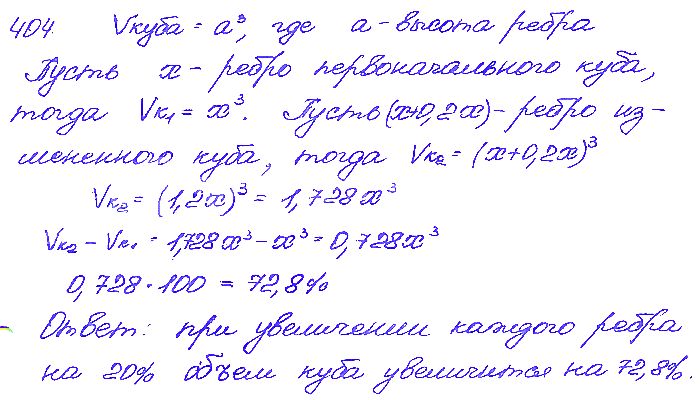 404. Vкуба = a³, где a - высота ребра
Пусть x - ребро первоначального куба,
тогда Vк₁ = x³. Пусть (x+0,2x) - ребро из-
мененного куба, тогда Vк₂ = (x+0,2x)³
Vк₂ = (1,2x)³ = 1,728x³
Vк₂ - Vк₁ = 1,728x³ - x³ = 0,728x³
0,728 · 100 = 72,8%
Ответ: при увеличении каждого ребра
на 20% объем куба увеличится на 72,8%.